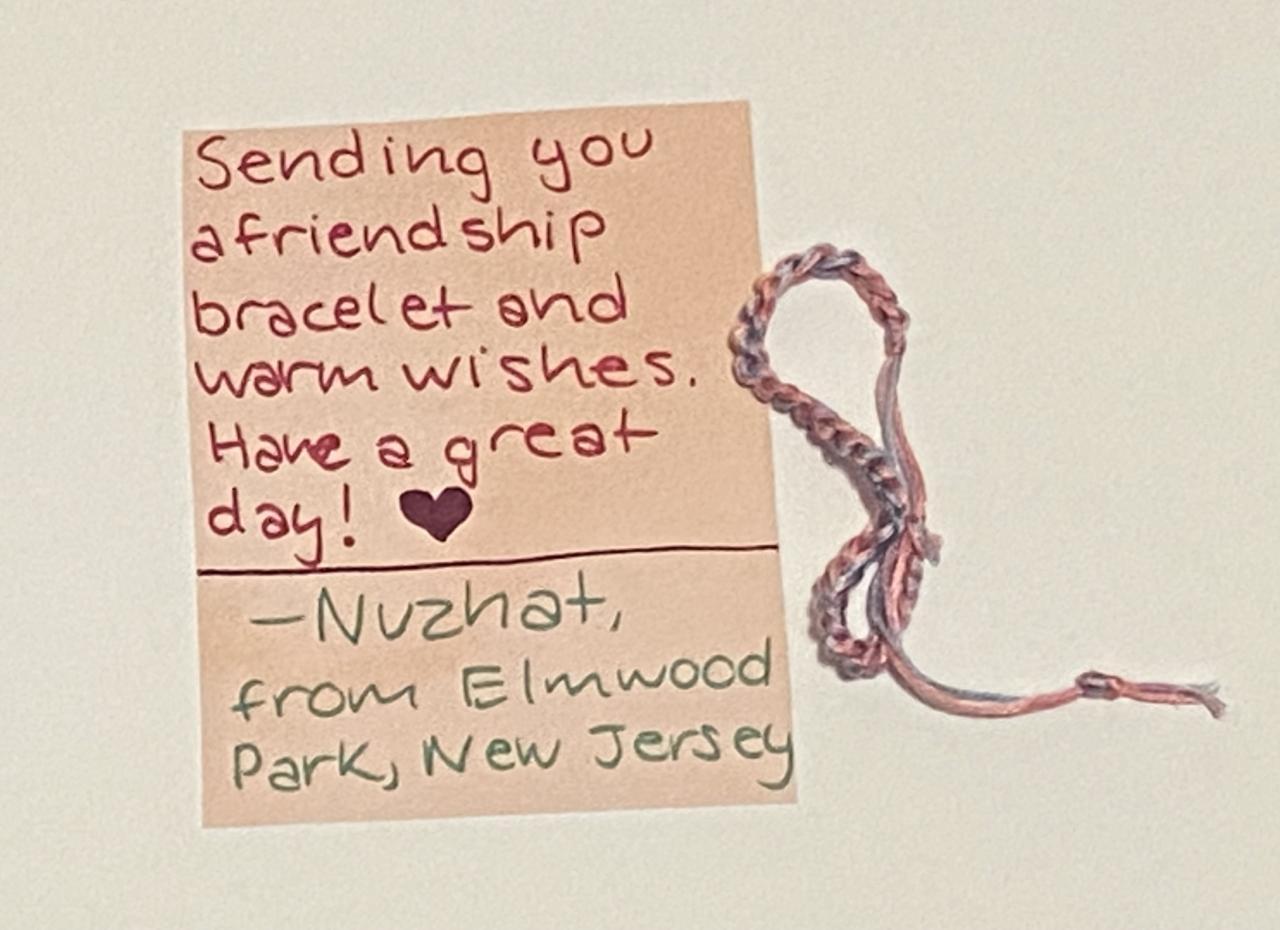 Sending you
a friendship
bracelet and
warm wishes.
Have a great
day! ♥
—Nuzhat,
from Elmwood
Park, New Jersey